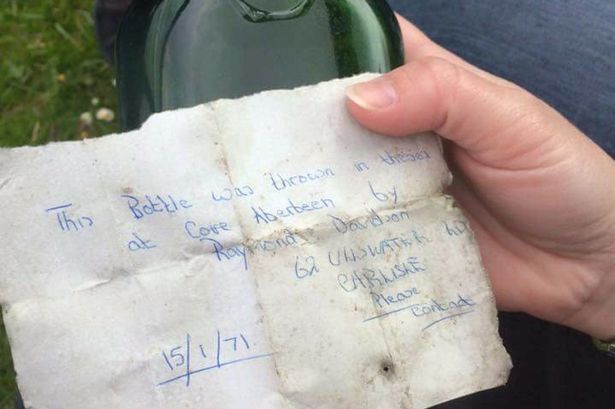 This Bottle was thrown in the sea
at Cove Aberdeen by
Raymond Davidson
62 ULLSWATER RD
CARLISLE
Please
Contact
15/1/71